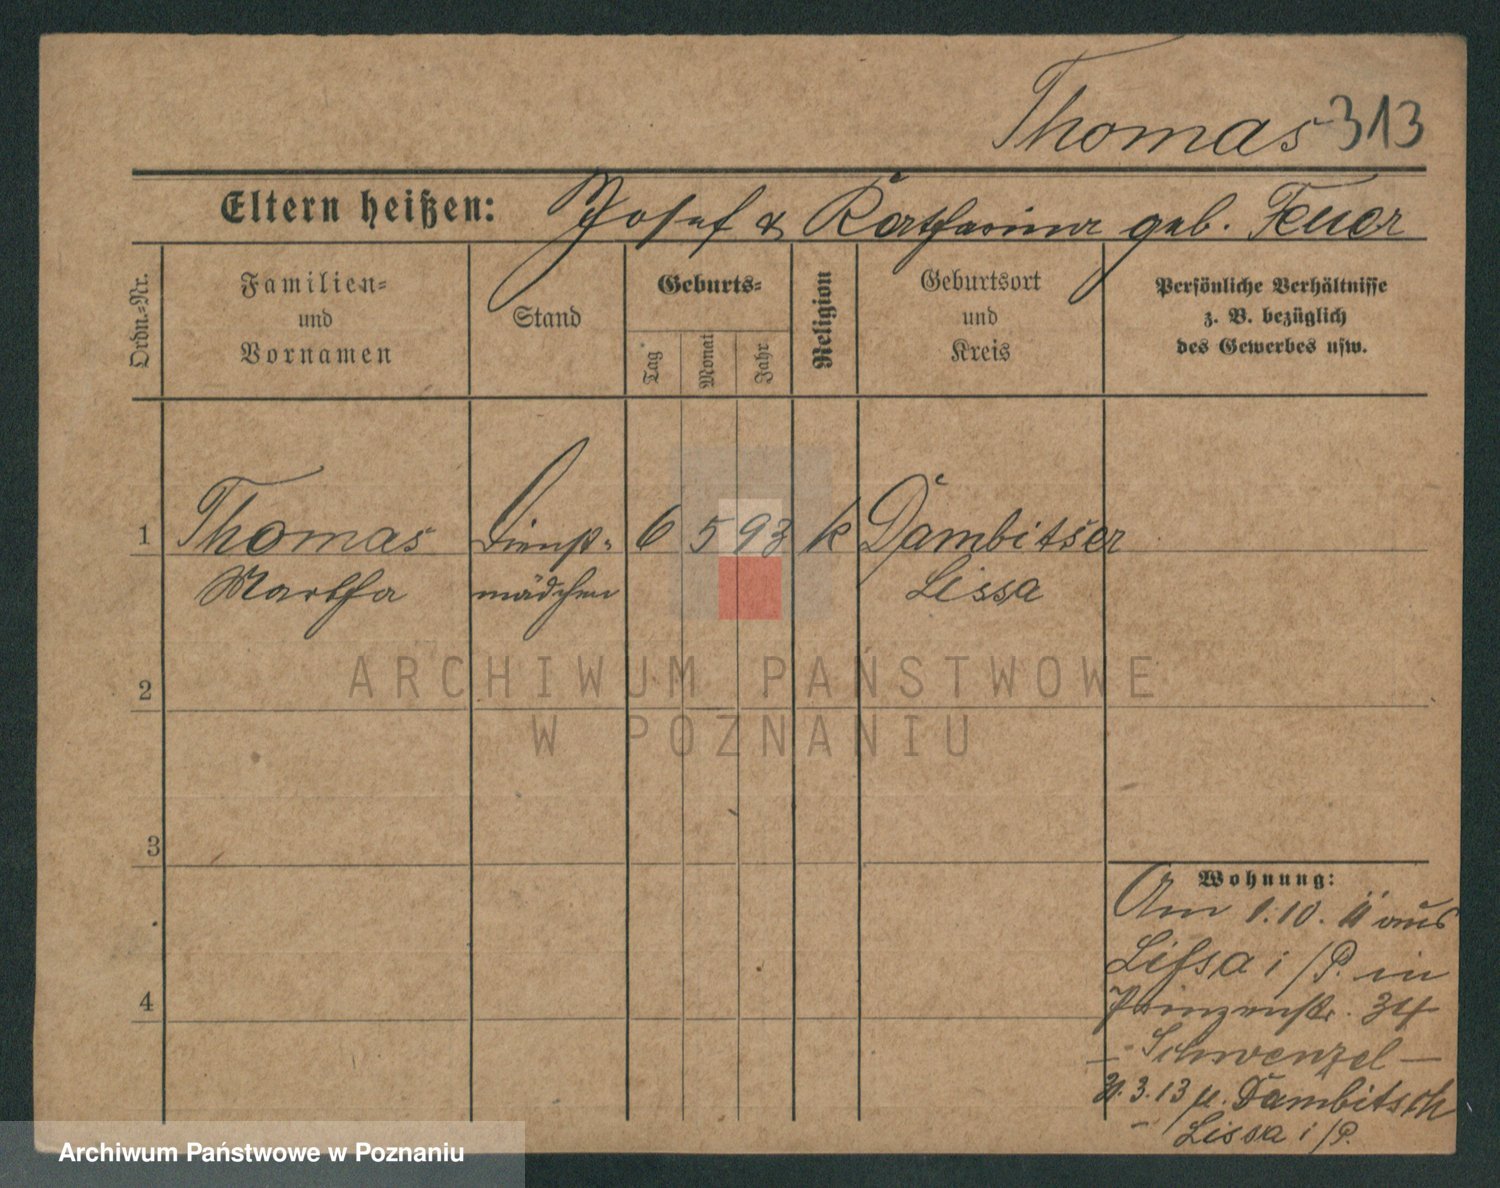 Thomas 313
Eltern heißen: Josef & Katharina geb. Feuer
Ordn.-Nr.
Familien-
und
Vornamen
Stand
Geburts-
Tag
Monat
Jahr
Religion
Geburtsort
und
Kreis
Persönliche Verhältnisse
z. B. bezüglich
des Gewerbes usw.
1 Thomas Dienst- 6 5 93 k Dambitser
Martha mädchen Lissa
ARCHIWUM PAŃSTWOWE
2
W POZNANIU
3
Wohnung:
Am 1.10. 11 aus
Lissa i/P. in
4
Prinzenstr. 34
- Schwenzel -
31.3.13 n. Dambitsch
Lissa i/P.
Archiwum Państwowe w Poznaniu